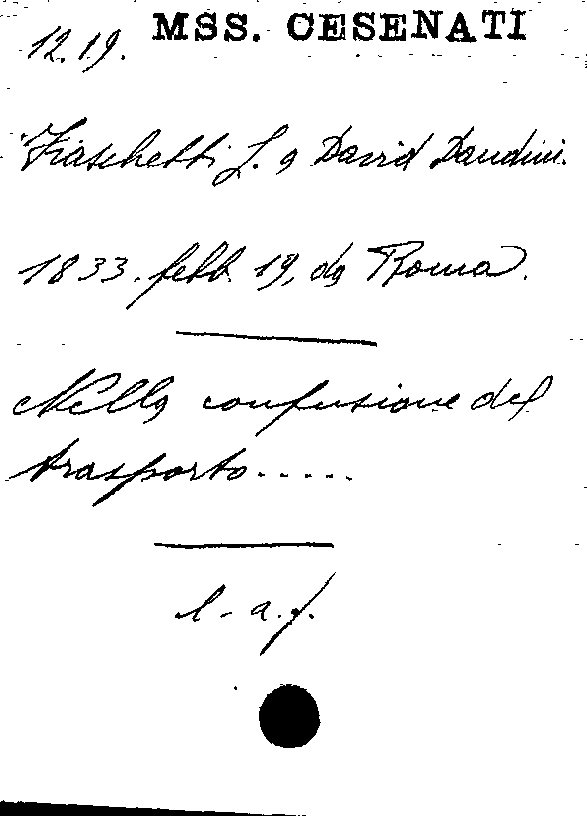 12.19. MSS. CESENATI
Fiaschetti L. a David Dandini.
1833. febb. 19, da Roma.
Nella confusione del
trasporto.....
l. a. f.